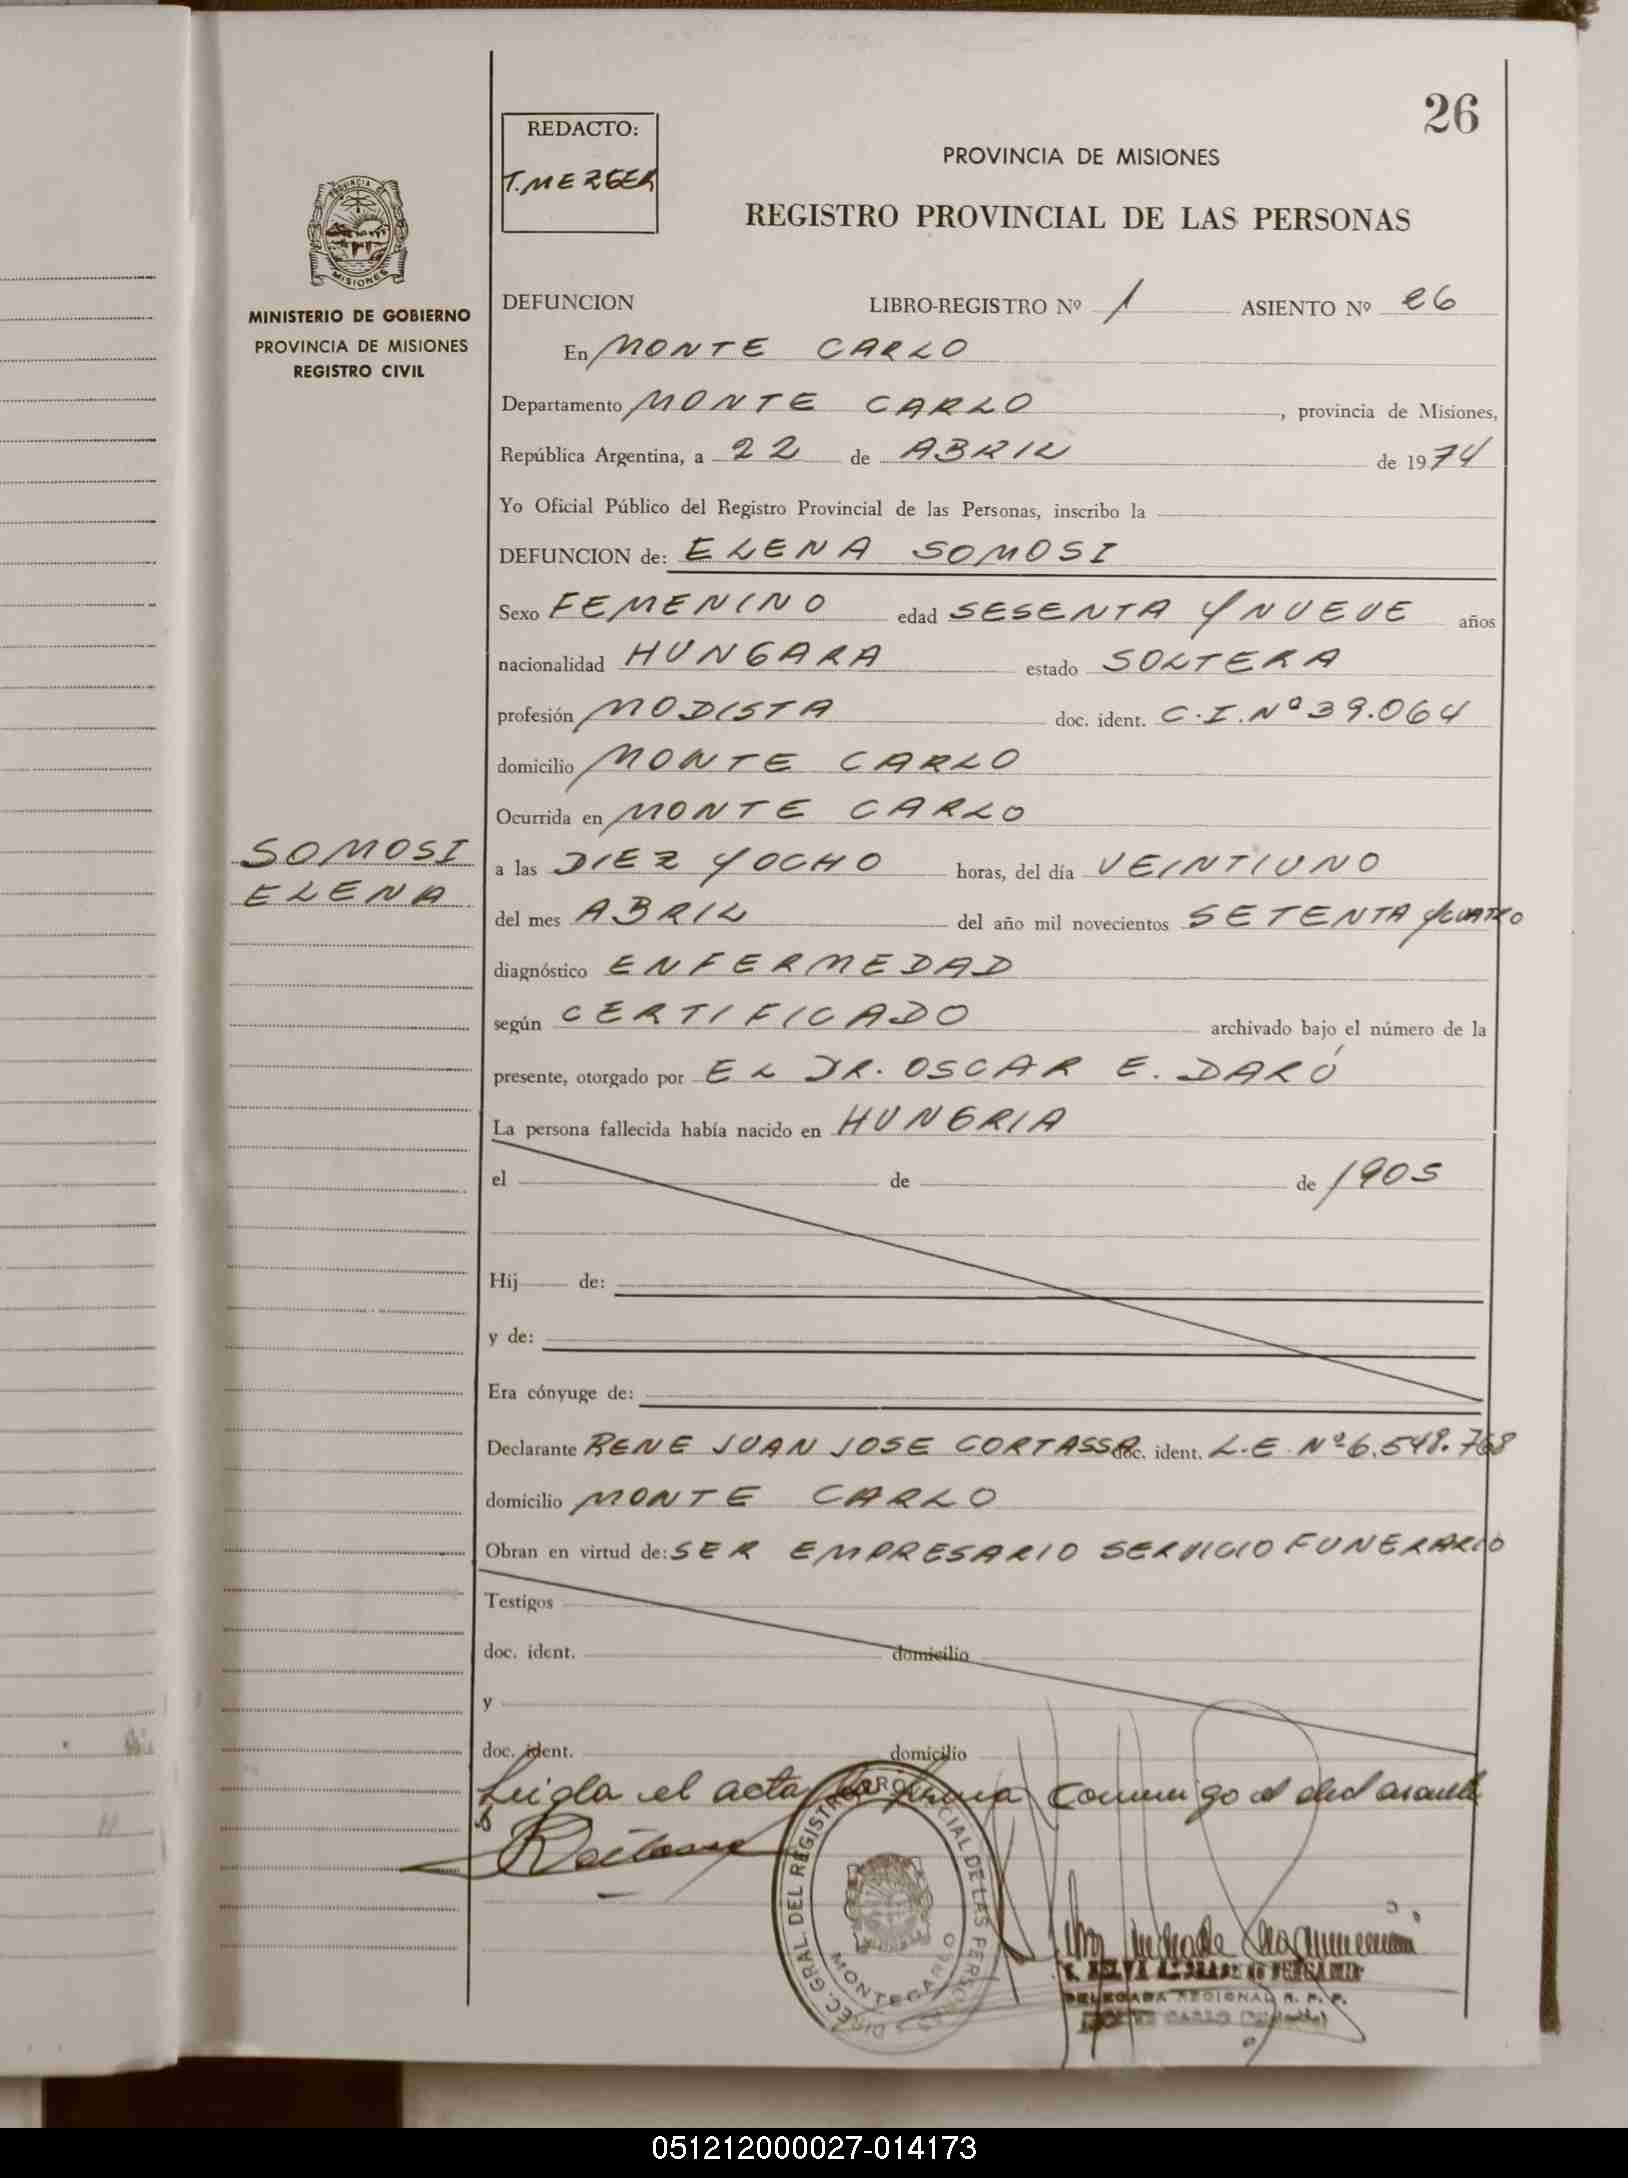 26
REDACTO:
T. MERGER
PROVINCIA DE MISIONES
REGISTRO PROVINCIAL DE LAS PERSONAS
PROVINCIA DE
MISIONES
MINISTERIO DE GOBIERNO
PROVINCIA DE MISIONES
REGISTRO CIVIL
DEFUNCION LIBRO-REGISTRO Nº 1 ASIENTO Nº 26
En MONTE CARLO
Departamento MONTE CARLO, provincia de Misiones,
República Argentina, a 22 de ABRIL de 1974
Yo Oficial Público del Registro Provincial de las Personas, inscribo la
DEFUNCION de: ELENA SOMOSI
Sexo FEMENINO edad SESENTA Y NUEVE años
nacionalidad HUNGARA estado SOLTERA
profesión MODISTA doc. ident. C.I. Nº 39.064
domicilio MONTE CARLO
Ocurrida en MONTE CARLO
SOMOSI
ELENA
a las DIEZ Y OCHO horas, del día VEINTIUNO
del mes ABRIL del año mil novecientos SETENTA Y CUATRO
diagnóstico ENFERMEDAD
según CERTIFICADO archivado bajo el número de la
presente, otorgado por EL DR. OSCAR E. DARÓ
La persona fallecida había nacido en HUNGRIA
el de de 1905
Hij de:
y de:
Era cónyuge de:
Declarante RENE JUAN JOSE CORTASSA doc. ident. L.E Nº 6.548.768
domicilio MONTE CARLO
Obran en virtud de: SER EMPRESARIO SERVICIO FUNERARIO
Testigos
doc. ident. domicilio
y
doc. ident. domicilio
Leida el acta la firma conmigo el declarante
DIREC. GRAL DEL REGISTRO PROVINCIAL DE LAS PERSONAS
MONTECARLO
DELEGADA REGIONAL R. P. P.
051212000027-014173